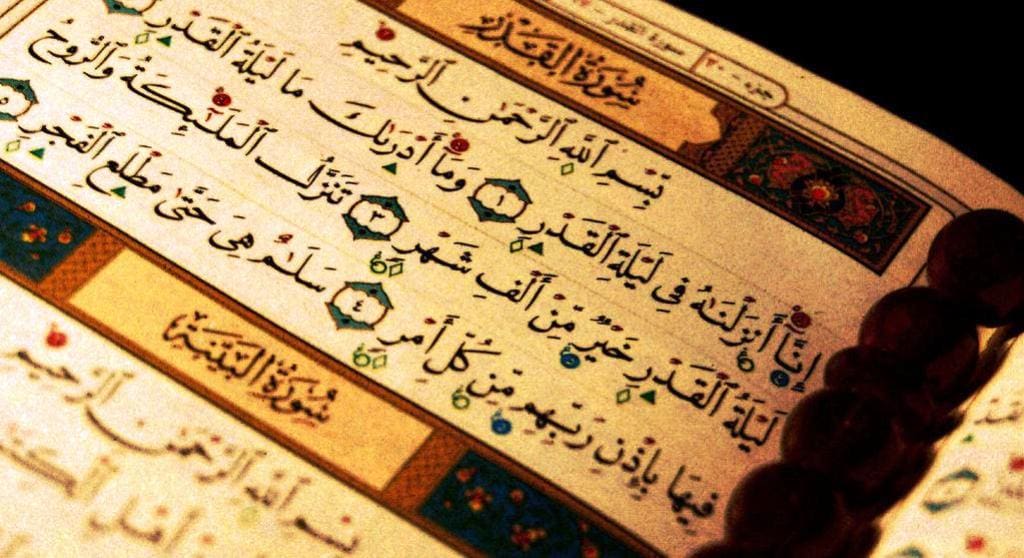 جزء - ٣٠
سورة القدر
سُورَةُ القَدْرِ
بِسْمِ ٱللَّهِ ٱلرَّحْمَٰنِ ٱلرَّحِيمِ
إِنَّآ أَنزَلْنَٰهُ فِى لَيْلَةِ ٱلْقَدْرِ ١ وَمَآ أَدْرَىٰكَ مَا لَيْلَةُ ٱلْقَدْرِ
لَيْلَةُ ٱلْقَدْرِ خَيْرٌ مِّنْ أَلْفِ شَهْرٍ ٣ تَنَزَّلُ ٱلْمَلَٰٓئِكَةُ وَٱلرُّوحُ
فِيهَا بِإِذْنِ رَبِّهِم مِّن كُلِّ أَمْرٍ ٤ سَلَٰمٌ هِىَ حَتَّىٰ مَطْلَعِ ٱلْفَجْرِ ٥
سُورَةُ البَيِّنَةِ
بِسْمِ ٱللَّهِ ٱلرَّحْمَٰنِ ٱلرَّحِيمِ